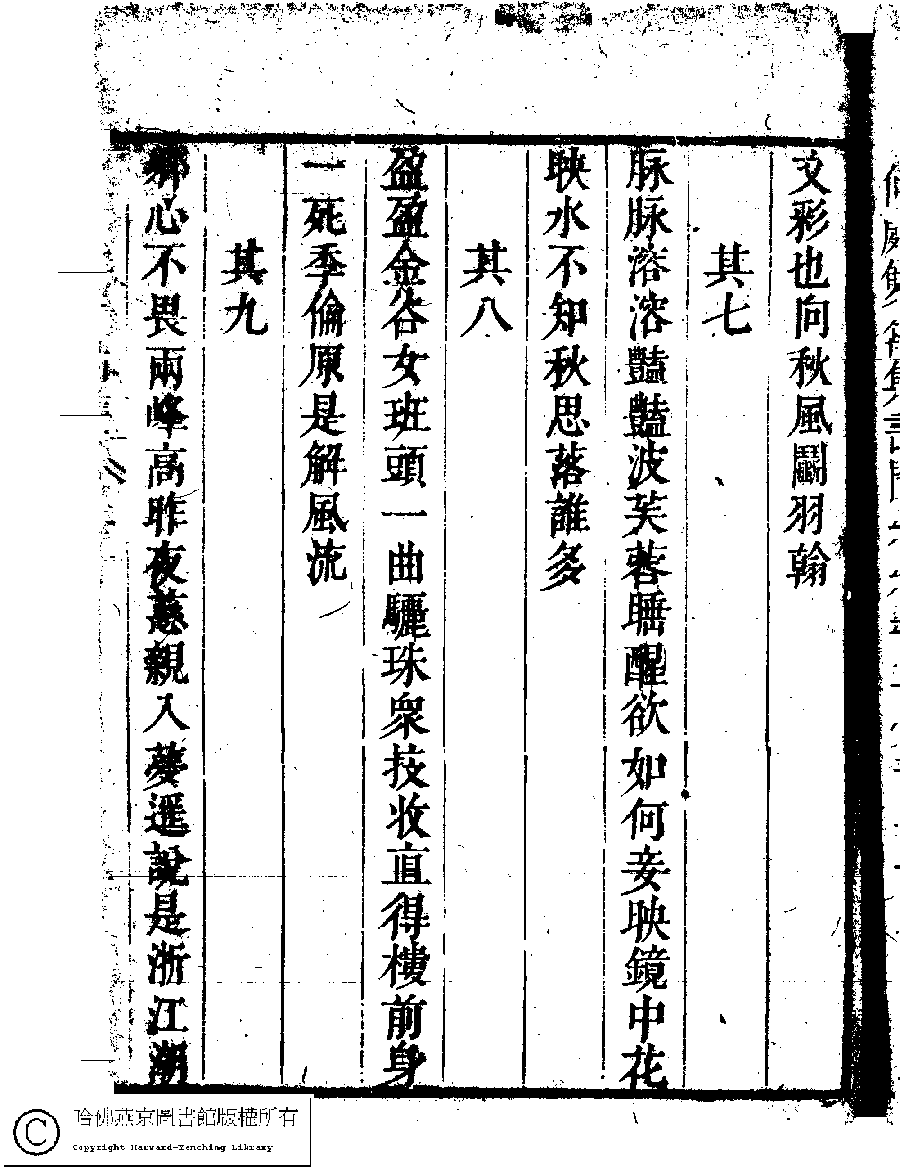 文彩也向秋風鬭羽翰
其七
脉脉溶溶豔豔波芙蓉睡醒欲如何妾映鏡中花
映水不知秋思落誰多
其八
盈盈金谷女班頭一曲驪珠衆技收直得樓前身
一死季倫原是解風流
其九
鄉心不畏兩峰高昨夜慈親入夢遥說是浙江潮
哈佛燕京圖書館版權所有
Copyright Harvard-Yenching Library